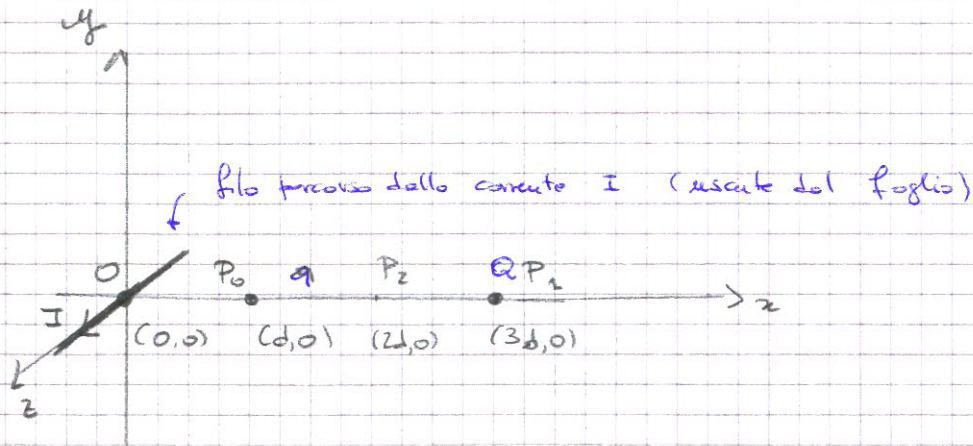 y
filo percorso dalla corrente I (uscente dal foglio)
O P₀ q P₂ Q P₁ x
I (0,0) (d,0) (2d,0) (3d,0)
z